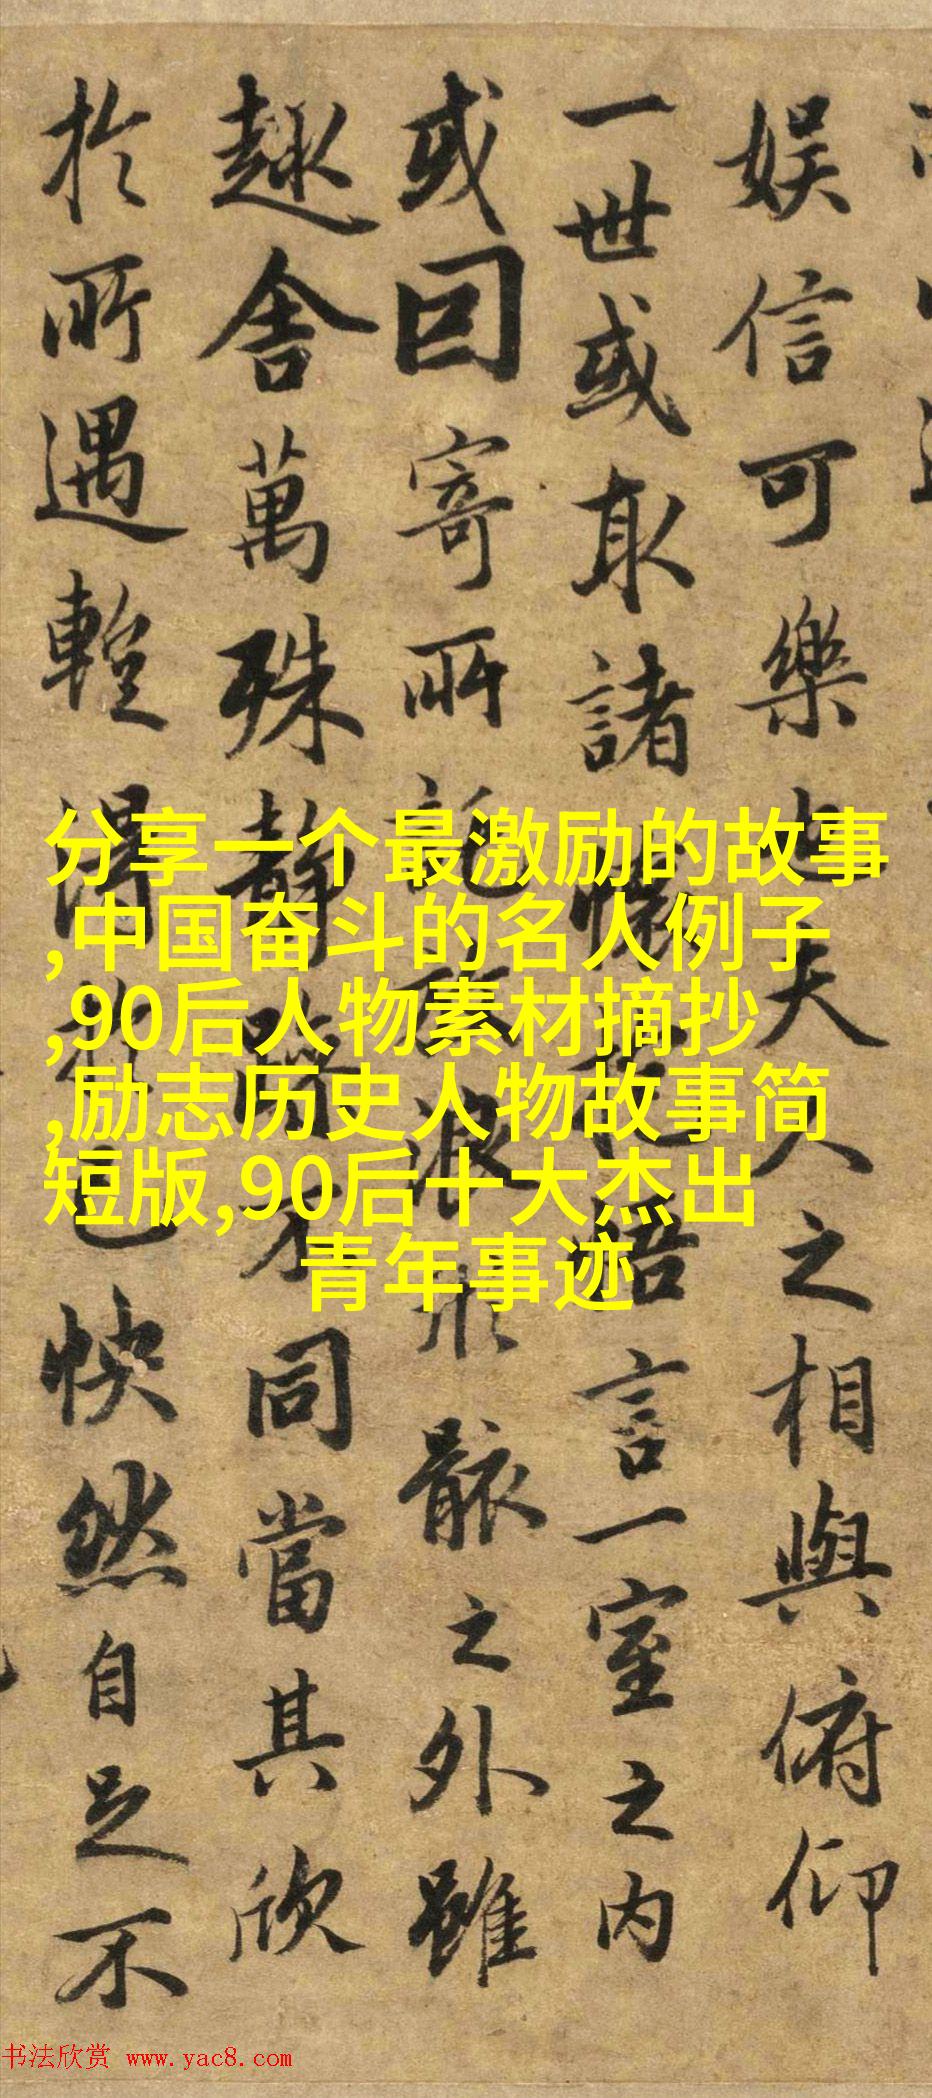 娛信可樂也夫人之相與俯仰
一世或取諸懷悟言一室之内
或因寄所託浪形骸之外雖
趣舍萬殊静躁不同當其欣
於所遇蹔得於己快然自足不
分享一个最激励的故事
,中国奋斗的名人例子
,90后人物素材摘抄
,励志历史人物故事简
短版,90后十大杰出
青年事迹
书法欣赏 www.yac8.com